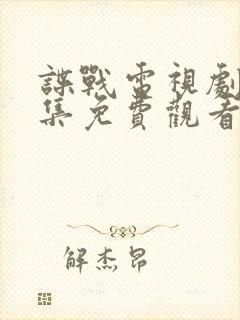 諜戰電視劇
集免費觀看
解杰昂